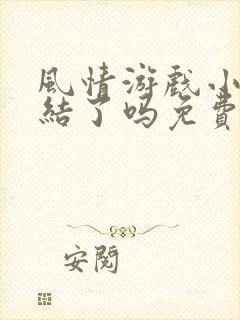 風情游戲小
結了嗎免費
安閱